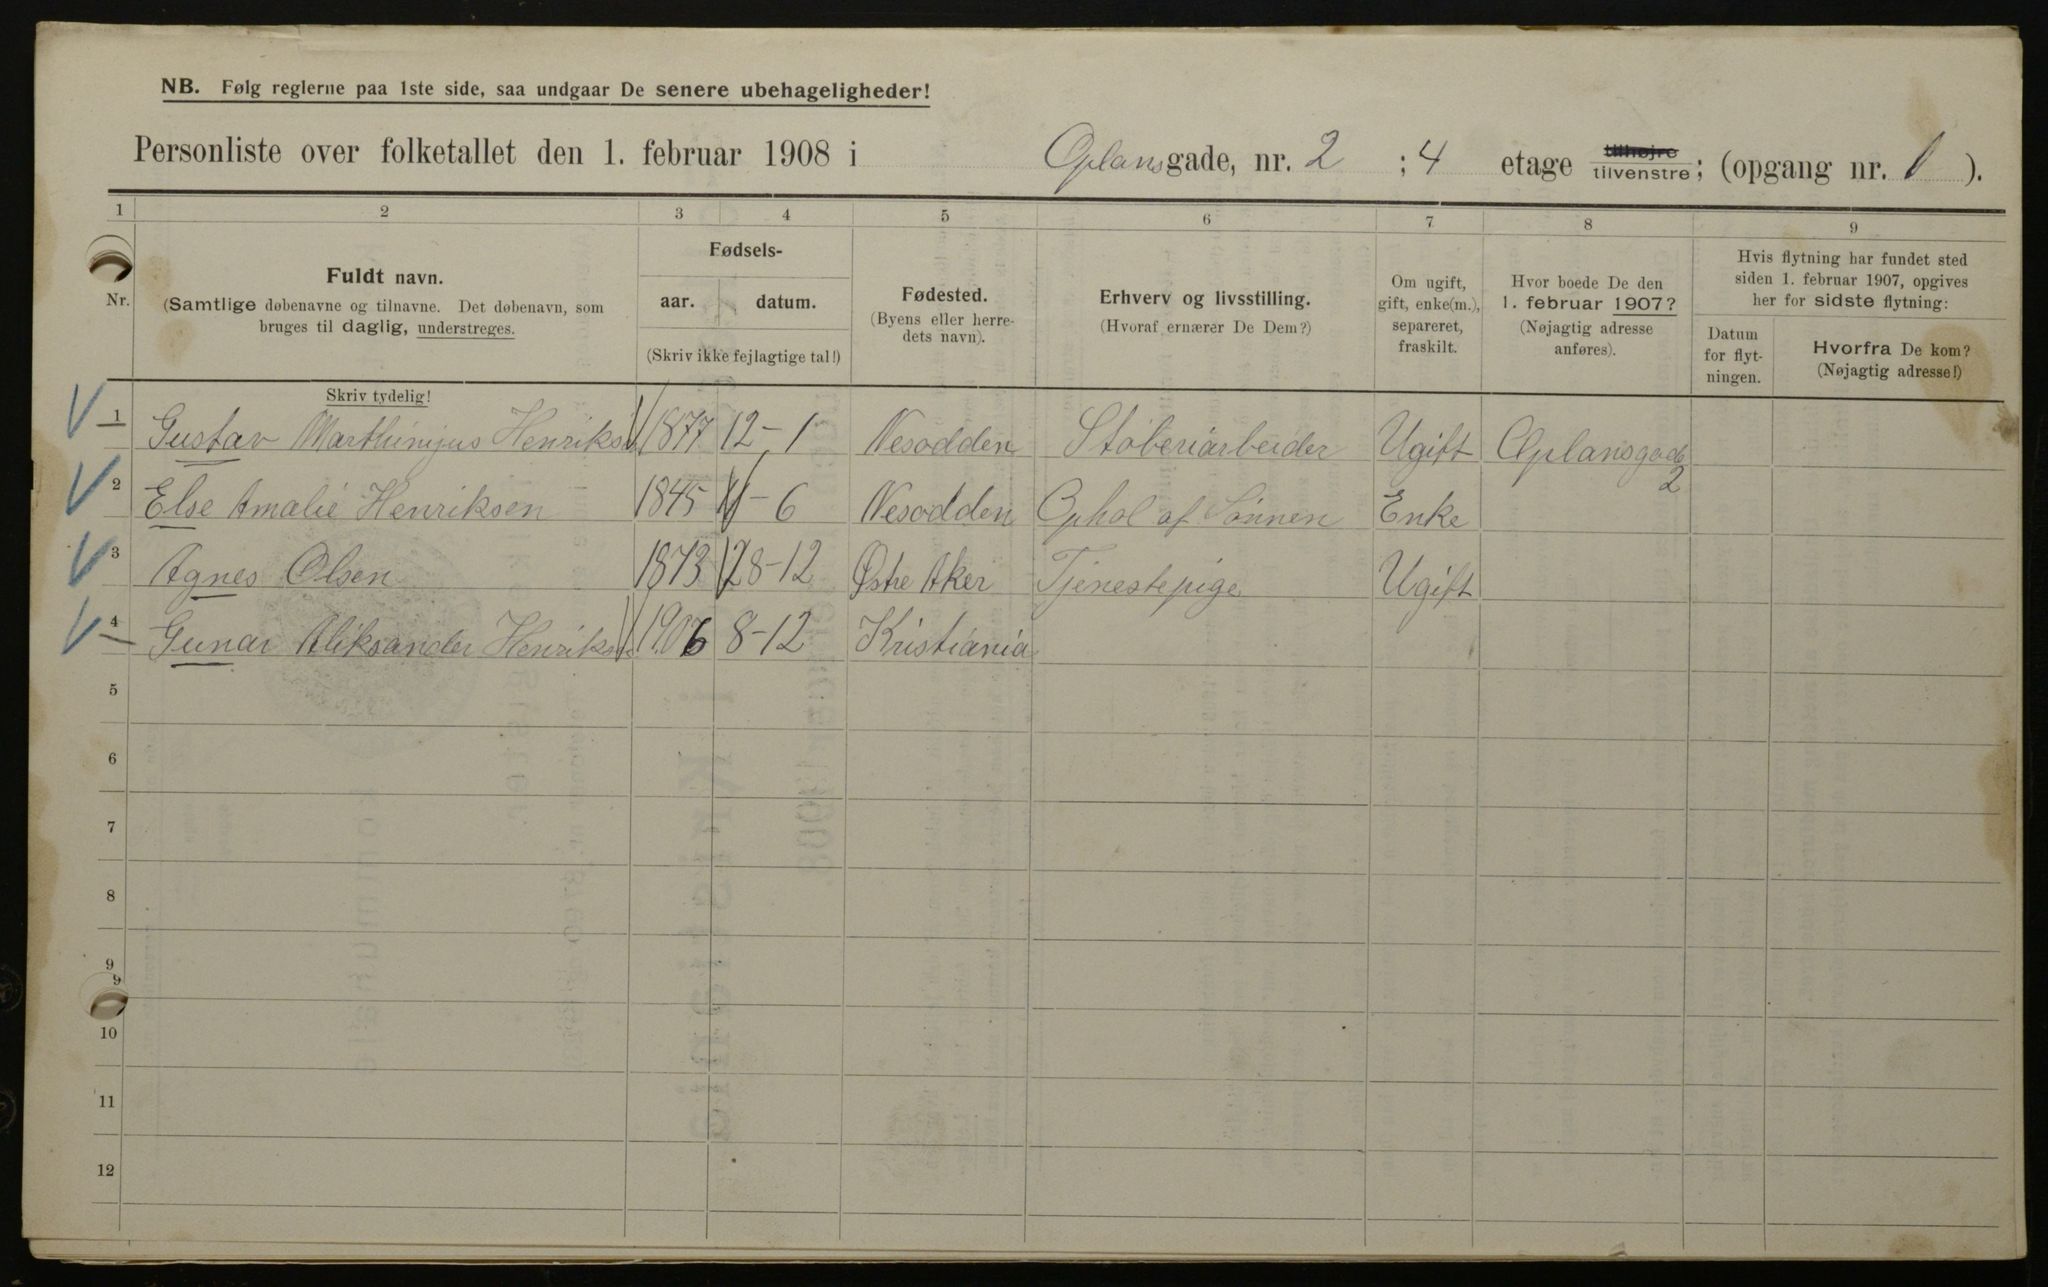 NB. Følg reglerne paa 1ste side, saa undgaar De senere ubehageligheder!
Personliste over folketallet den 1. februar 1908 i Oplansgade, nr. 2 ; 4 etage tilhøjre tilvenstre; (opgang nr. 1 ).
1 2 3 4 5 6 7 8 9
Nr.
Fuldt navn.
(Samtlige døbenavne og tilnavne. Det døbenavn, som
bruges til daglig, understreges.
Skriv tydelig!
Fødsels-
aar. datum.
(Skriv ikke fejlagtige tal!)
Fødested.
(Byens eller herre-
dets navn).
Erhverv og livsstilling.
(Hvoraf ernærer De Dem?)
Om ugift,
gift, enke(m.),
separeret,
fraskilt.
Hvor boede De den
1. februar 1907?
(Nøjagtig adresse
anføres).
Hvis flytning har fundet sted
siden 1. februar 1907, opgives
her for sidste flytning:
Datum
for flyt-
ningen.
Hvorfra De kom?
(Nøjagtig adresse!)
1 Gustav Marthinijus Henriksen 1877 12-1 Nesodden Støberiarbeider Ugift Oplansgade
2
2 Else Amalie Henriksen 1845 11-6 Nesodden Ophol af Sønnen Enke
3 Agnes Olsen 1873 28-12 Østre Aker Tjenestepige Ugift
4 Gunar Aliksander Henriksen 1906 8-12 Kristiania
5
6
7
8
9
9
10
11
12